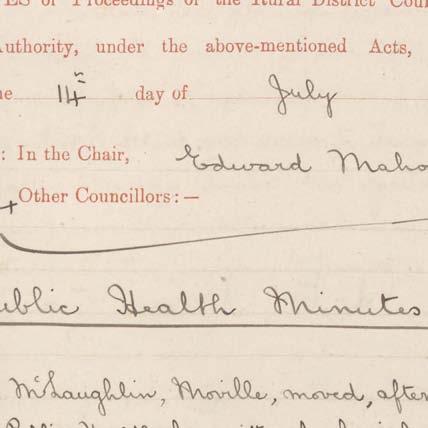 of Proceedings of the Rural District
Authority, under the above-mentioned Acts,
14th day of July
: In the Chair, Edward
Other Councillors:—
Health Minutes
McLaughlin, Moville, moved, after